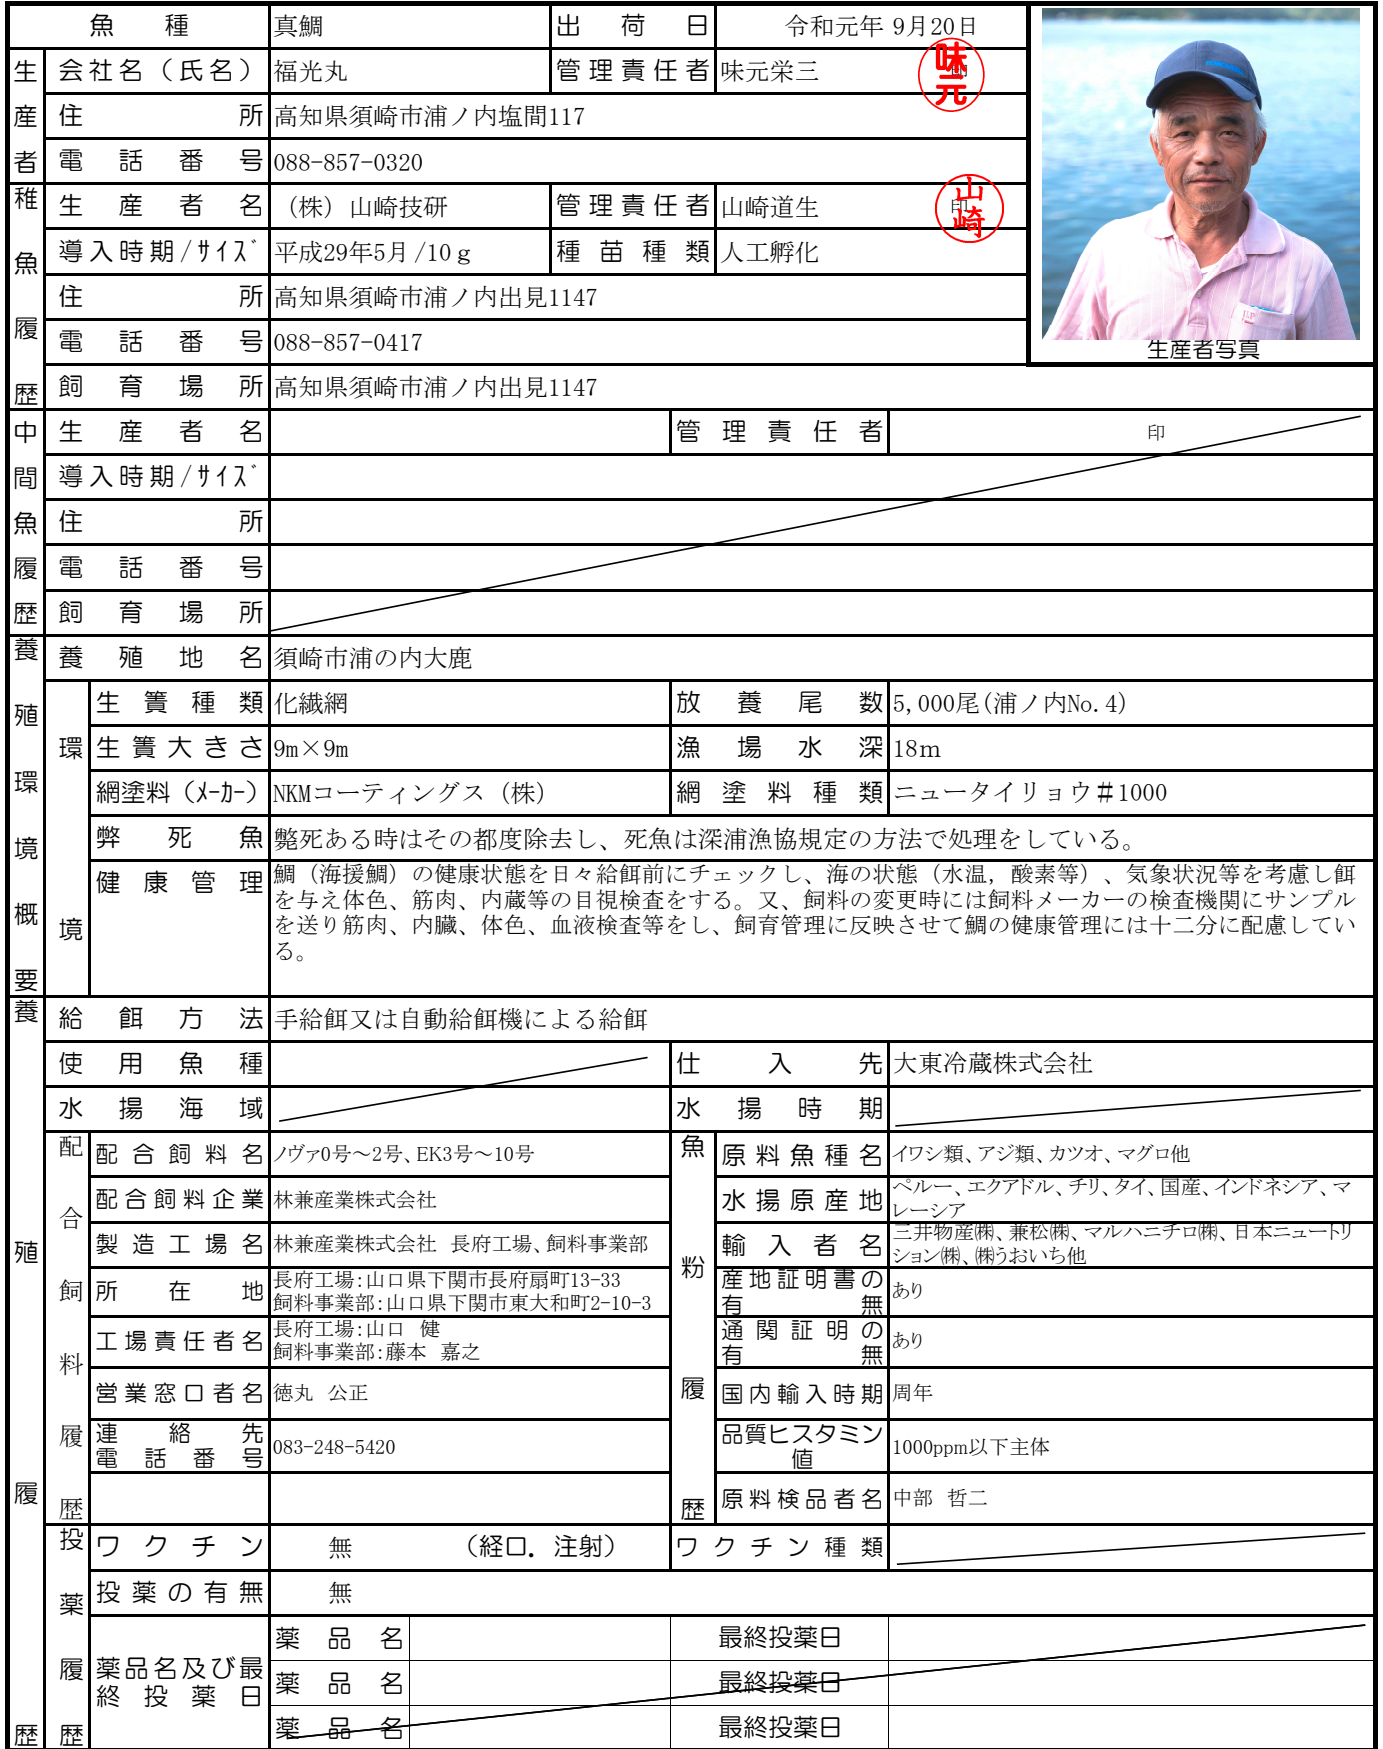 魚種 真鯛 出荷日 令和元年 9月20日
生産者
会社名（氏名） 福光丸 管理責任者 味元栄三 印 味元
住所 高知県須崎市浦ノ内塩間117
電話番号 088-857-0320
稚魚履歴
生産者名 （株）山崎技研 管理責任者 山崎道生 印 山崎
導入時期/ｻｲｽﾞ 平成29年5月/10ｇ 種苗種類 人工孵化
住所 高知県須崎市浦ノ内出見1147
電話番号 088-857-0417
JLP
生産者写真
飼育場所 高知県須崎市浦ノ内出見1147
中間魚履歴
生産者名 管理責任者 印
導入時期/ｻｲｽﾞ
住所
電話番号
飼育場所
養殖環境概要
養殖地名 須崎市浦の内大鹿
環境
生簀種類 化繊網 放養尾数 5,000尾(浦ノ内No.4)
生簀大きさ 9m×9m 漁場水深 18ｍ
網塗料（ﾒｰｶｰ） NKMコーティングス（株） 網塗料種類 ニュータイリョウ＃1000
弊死魚 斃死ある時はその都度除去し、死魚は深浦漁協規定の方法で処理をしている。
健康管理 鯛（海援鯛）の健康状態を日々給餌前にチェックし、海の状態（水温，酸素等）、気象状況等を考慮し餌
を与え体色、筋肉、内蔵等の目視検査をする。又、飼料の変更時には飼料メーカーの検査機関にサンプル
を送り筋肉、内臓、体色、血液検査等をし、飼育管理に反映させて鯛の健康管理には十二分に配慮してい
る。
養殖履歴
給餌方法 手給餌又は自動給餌機による給餌
使用魚種 仕入先 大東冷蔵株式会社
水揚海域 水揚時期
配合飼料履歴
配合飼料名 ノヴァ0号～2号、EK3号～10号
配合飼料企業 林兼産業株式会社
製造工場名 林兼産業株式会社 長府工場、飼料事業部
所在地 長府工場:山口県下関市長府扇町13-33
飼料事業部:山口県下関市東大和町2-10-3
工場責任者名 長府工場:山口 健
飼料事業部:藤本 嘉之
営業窓口者名 徳丸 公正
連絡先
電話番号 083-248-5420
魚粉履歴
原料魚種名 イワシ類、アジ類、カツオ、マグロ他
水揚原産地 ペルー、エクアドル、チリ、タイ、国産、インドネシア、マ
レーシア
輸入者名 三井物産㈱、兼松㈱、マルハニチロ㈱、日本ニュートリ
ション㈱、㈱うおいち他
産地証明書の
有無 あり
通関証明の
有無 あり
国内輸入時期 周年
品質ヒスタミン
値 1000ppm以下主体
原料検品者名 中部 哲二
投薬履歴
ワクチン 無 （経口．注射） ワクチン種類
投薬の有無 無
薬品名及び最
終投薬日
薬品名 最終投薬日
薬品名 最終投薬日
薬品名 最終投薬日